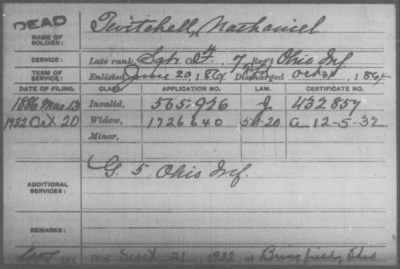 DEAD
NAME OF SOLDIER: Twitchell, Nathaniel
SERVICE: Late rank, Sgt. Co. F, 7 Reg't Ohio Inf
TERM OF SERVICE: Enlisted June 20, 1861 Discharged , 1864
DATE OF FILING. CLASS. APPLICATION NO. LAW. CERTIFICATE NO.
1886 Mar 13 Invalid, 565.926 432857
1922 Oct 20 Widow, 1726640 A 12-5-32
Minor,
ADDITIONAL SERVICES: G. 5 Ohio Inf.
REMARKS:
Died Sept 21, 1922, at